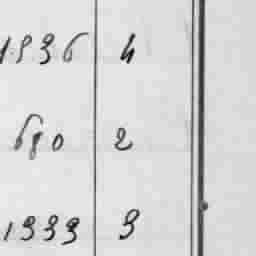 1936 4
680 2
1933 3